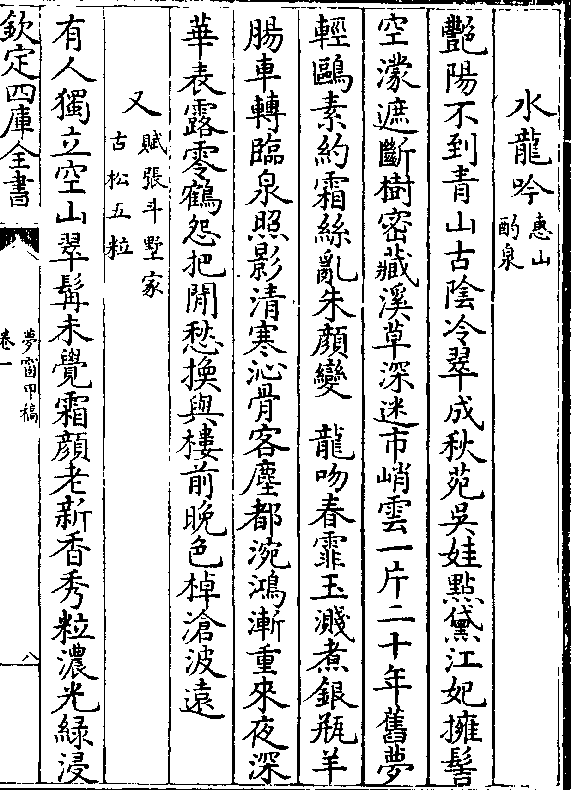 水龍吟 惠山
酌泉
豔陽不到青山古陰冷翠成秋苑吳娃點黛江妃擁髻
空濛遮斷樹密藏溪草深迷市峭雲一片二十年舊夢
輕鷗素約霜絲亂朱顏變　龍吻春霏玉濺煮銀瓶羊
腸車轉臨泉照影清寒沁骨客塵都浣鴻漸重來夜深
華表露零鶴怨把閒愁換與樓前晚色棹滄波遠
又 賦張斗墅家
古松五粒
有人獨立空山翠髯未覺霜顏老新香秀粒濃光緑浸
欽定四庫全書
夢窗甲稿
卷一
八